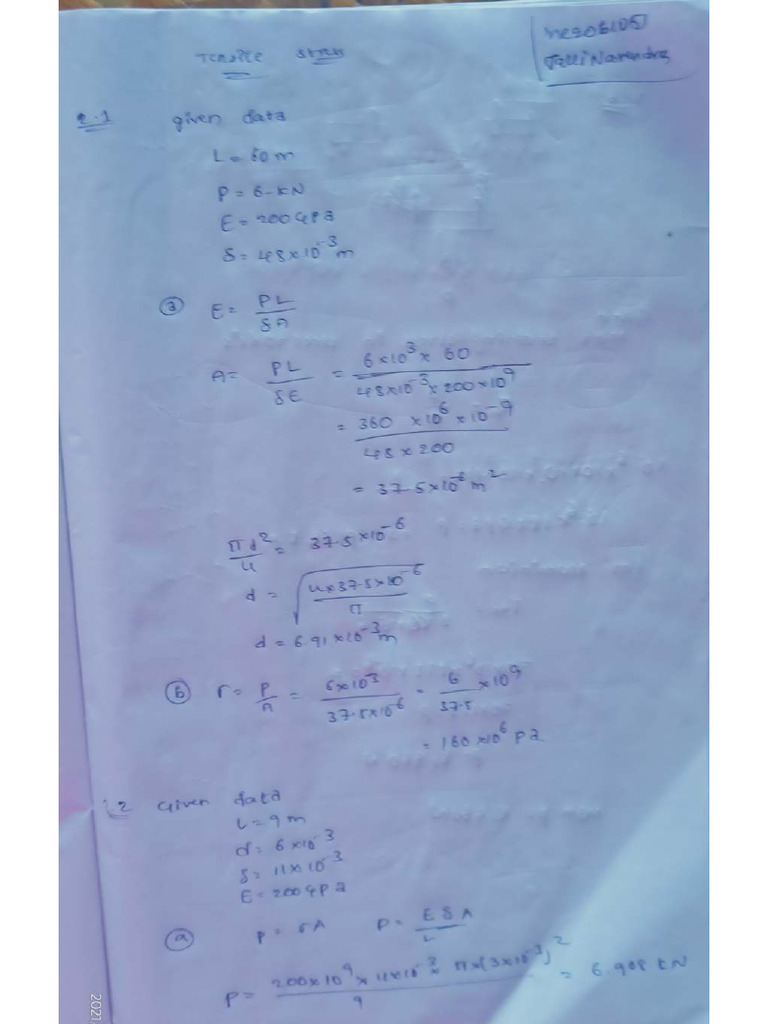 Tensile stress
me20b105
Talli Narendra
2.1 given data
L = 60 m
P = 6 KN
E = 200 GPa
δ = 48×10⁻³ m
ⓐ E = PL/δA
A = PL/δE = 6×10³ × 60 / 48×10⁻³ × 200×10⁹
= 360 ×10⁶ ×10⁻⁹ / 48 × 200
= 37.5×10⁻⁶ m²
πd²/4 = 37.5×10⁻⁶
d = √(4×37.5×10⁻⁶/π)
d = 6.91×10⁻³ m
ⓑ σ = P/A = 6×10³ / 37.5×10⁻⁶ = 6/37.5 ×10⁹
= 160×10⁶ Pa
2 Given data
L = 9 m
d = 6×10⁻³
δ = 11×10⁻³
E = 200 GPa
ⓐ P = σA P = EδA/L
P = 200×10⁹ × 11×10⁻³ × π×(3×10⁻³)² / 9 = 6.908 KN
2021